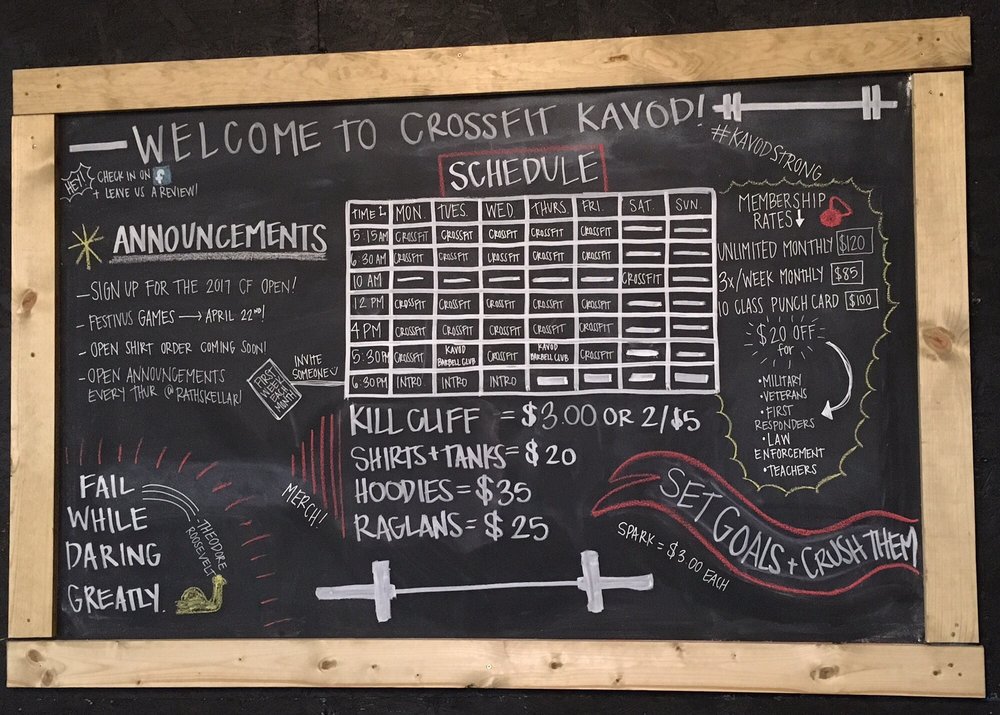 WELCOME TO CROSSFIT KAVOD!
#KAVODSTRONG
HEY!
CHECK IN ON f
+ LEAVE US A REVIEW!
ANNOUNCEMENTS
- SIGN UP FOR THE 2017 CF OPEN!
- FESTIVUS GAMES → APRIL 22ND!
- OPEN SHIRT ORDER COMING SOON!
- OPEN ANNOUNCEMENTS
EVERY THUR @ RATHSKELLAR!
INVITE
SOMEONE
FIRST
WEEK
EACH
MONTH
SCHEDULE
TIME MON. TUES. WED. THURS. FRI. SAT. SUN.
5:15 AM CROSSFIT CROSSFIT CROSSFIT CROSSFIT CROSSFIT — —
6:30 AM CROSSFIT CROSSFIT CROSSFIT CROSSFIT CROSSFIT — —
10 AM — — — — — CROSSFIT —
12 PM CROSSFIT CROSSFIT CROSSFIT CROSSFIT CROSSFIT — —
4 PM CROSSFIT CROSSFIT CROSSFIT CROSSFIT CROSSFIT — —
5:30 PM CROSSFIT KAVOD BARBELL CLUB CROSSFIT KAVOD BARBELL CLUB CROSSFIT — —
6:30 PM INTRO INTRO INTRO — — — —
MEMBERSHIP
RATES↓
UNLIMITED MONTHLY $120
3x/WEEK MONTHLY $85
10 CLASS PUNCH CARD $100
$20 OFF
for
•MILITARY
•VETERANS
•FIRST
RESPONDERS
•LAW
ENFORCEMENT
•TEACHERS
MERCH!
KILL CLIFF = $3.00 OR 2/$5
SHIRTS+TANKS = $20
HOODIES = $35
RAGLANS = $25
FAIL
WHILE
DARING
GREATLY.
-THEODORE
ROOSEVELT
SET GOALS + CRUSH THEM
SPARK = $3.00 EACH